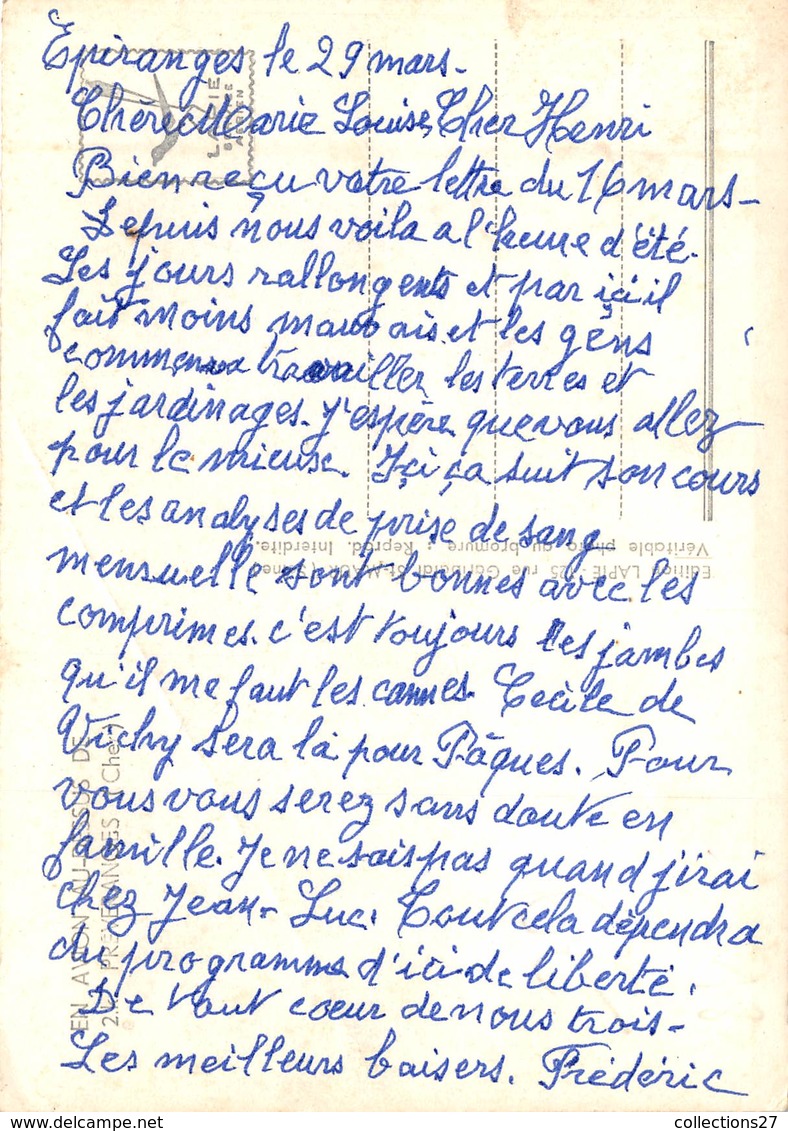 Epiranges le 29 mars.
Chère Marie Louise, Cher Henri
Bien reçu votre lettre du 16 mars -
Depuis nous voila a l'heure d'été.
Les jours rallongents et par içi il
fait moins mauvais et les gens
commence a travailler les terres et
les jardinages. J'espère que vous allez
pour le mieux. Içi ça suit son cours
et les analyses de prise de sang
mensuelle sont bonnes avec les
comprimes. c'est toujours les jambes
qu'il me faut les cannes. Cecile de
Vichy sera là pour Pâques. Pour
vous vous serez sans doute en
famille. Je ne sais pas quand j'irai
chez Jean-Luc. Tout cela dépendra
du programme d'ici de liberté.
De tout coeur de nous trois -
Les meilleurs baisers. Frédéric
EN AVION AU-DESSUS DE
2. PRÉVERANGES (Cher)
Edition LAPIE - 125 rue Garibaldi St-MAUR (Seine)
Véritable photo au bromure : Reprod. Interdite.
LAPIE
collections27